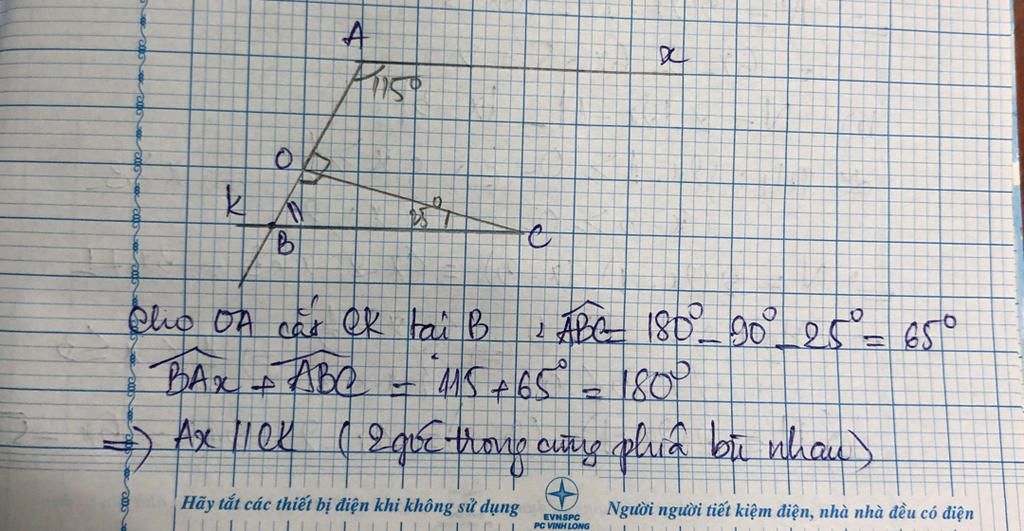 A
x
115°
O
K
25°
C
B
Cho OA cắt CK tại B : ABC = 180° - 90° - 25° = 65°
BAx + ABC = 115 + 65° = 180°
=> Ax // CK (2 góc trong cùng phía bù nhau)
Hãy tắt các thiết bị điện khi không sử dụng
EVNSPC
PC VINH LONG
Người người tiết kiệm điện, nhà nhà đều có điện